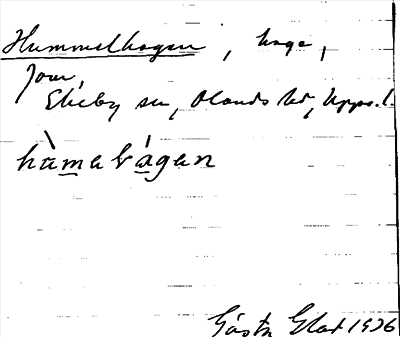 Hummelhagen, hage,
Tom,
Skeby sn, Olands hd, Upps. l.
hùmelágen
Gösta Glad 1926